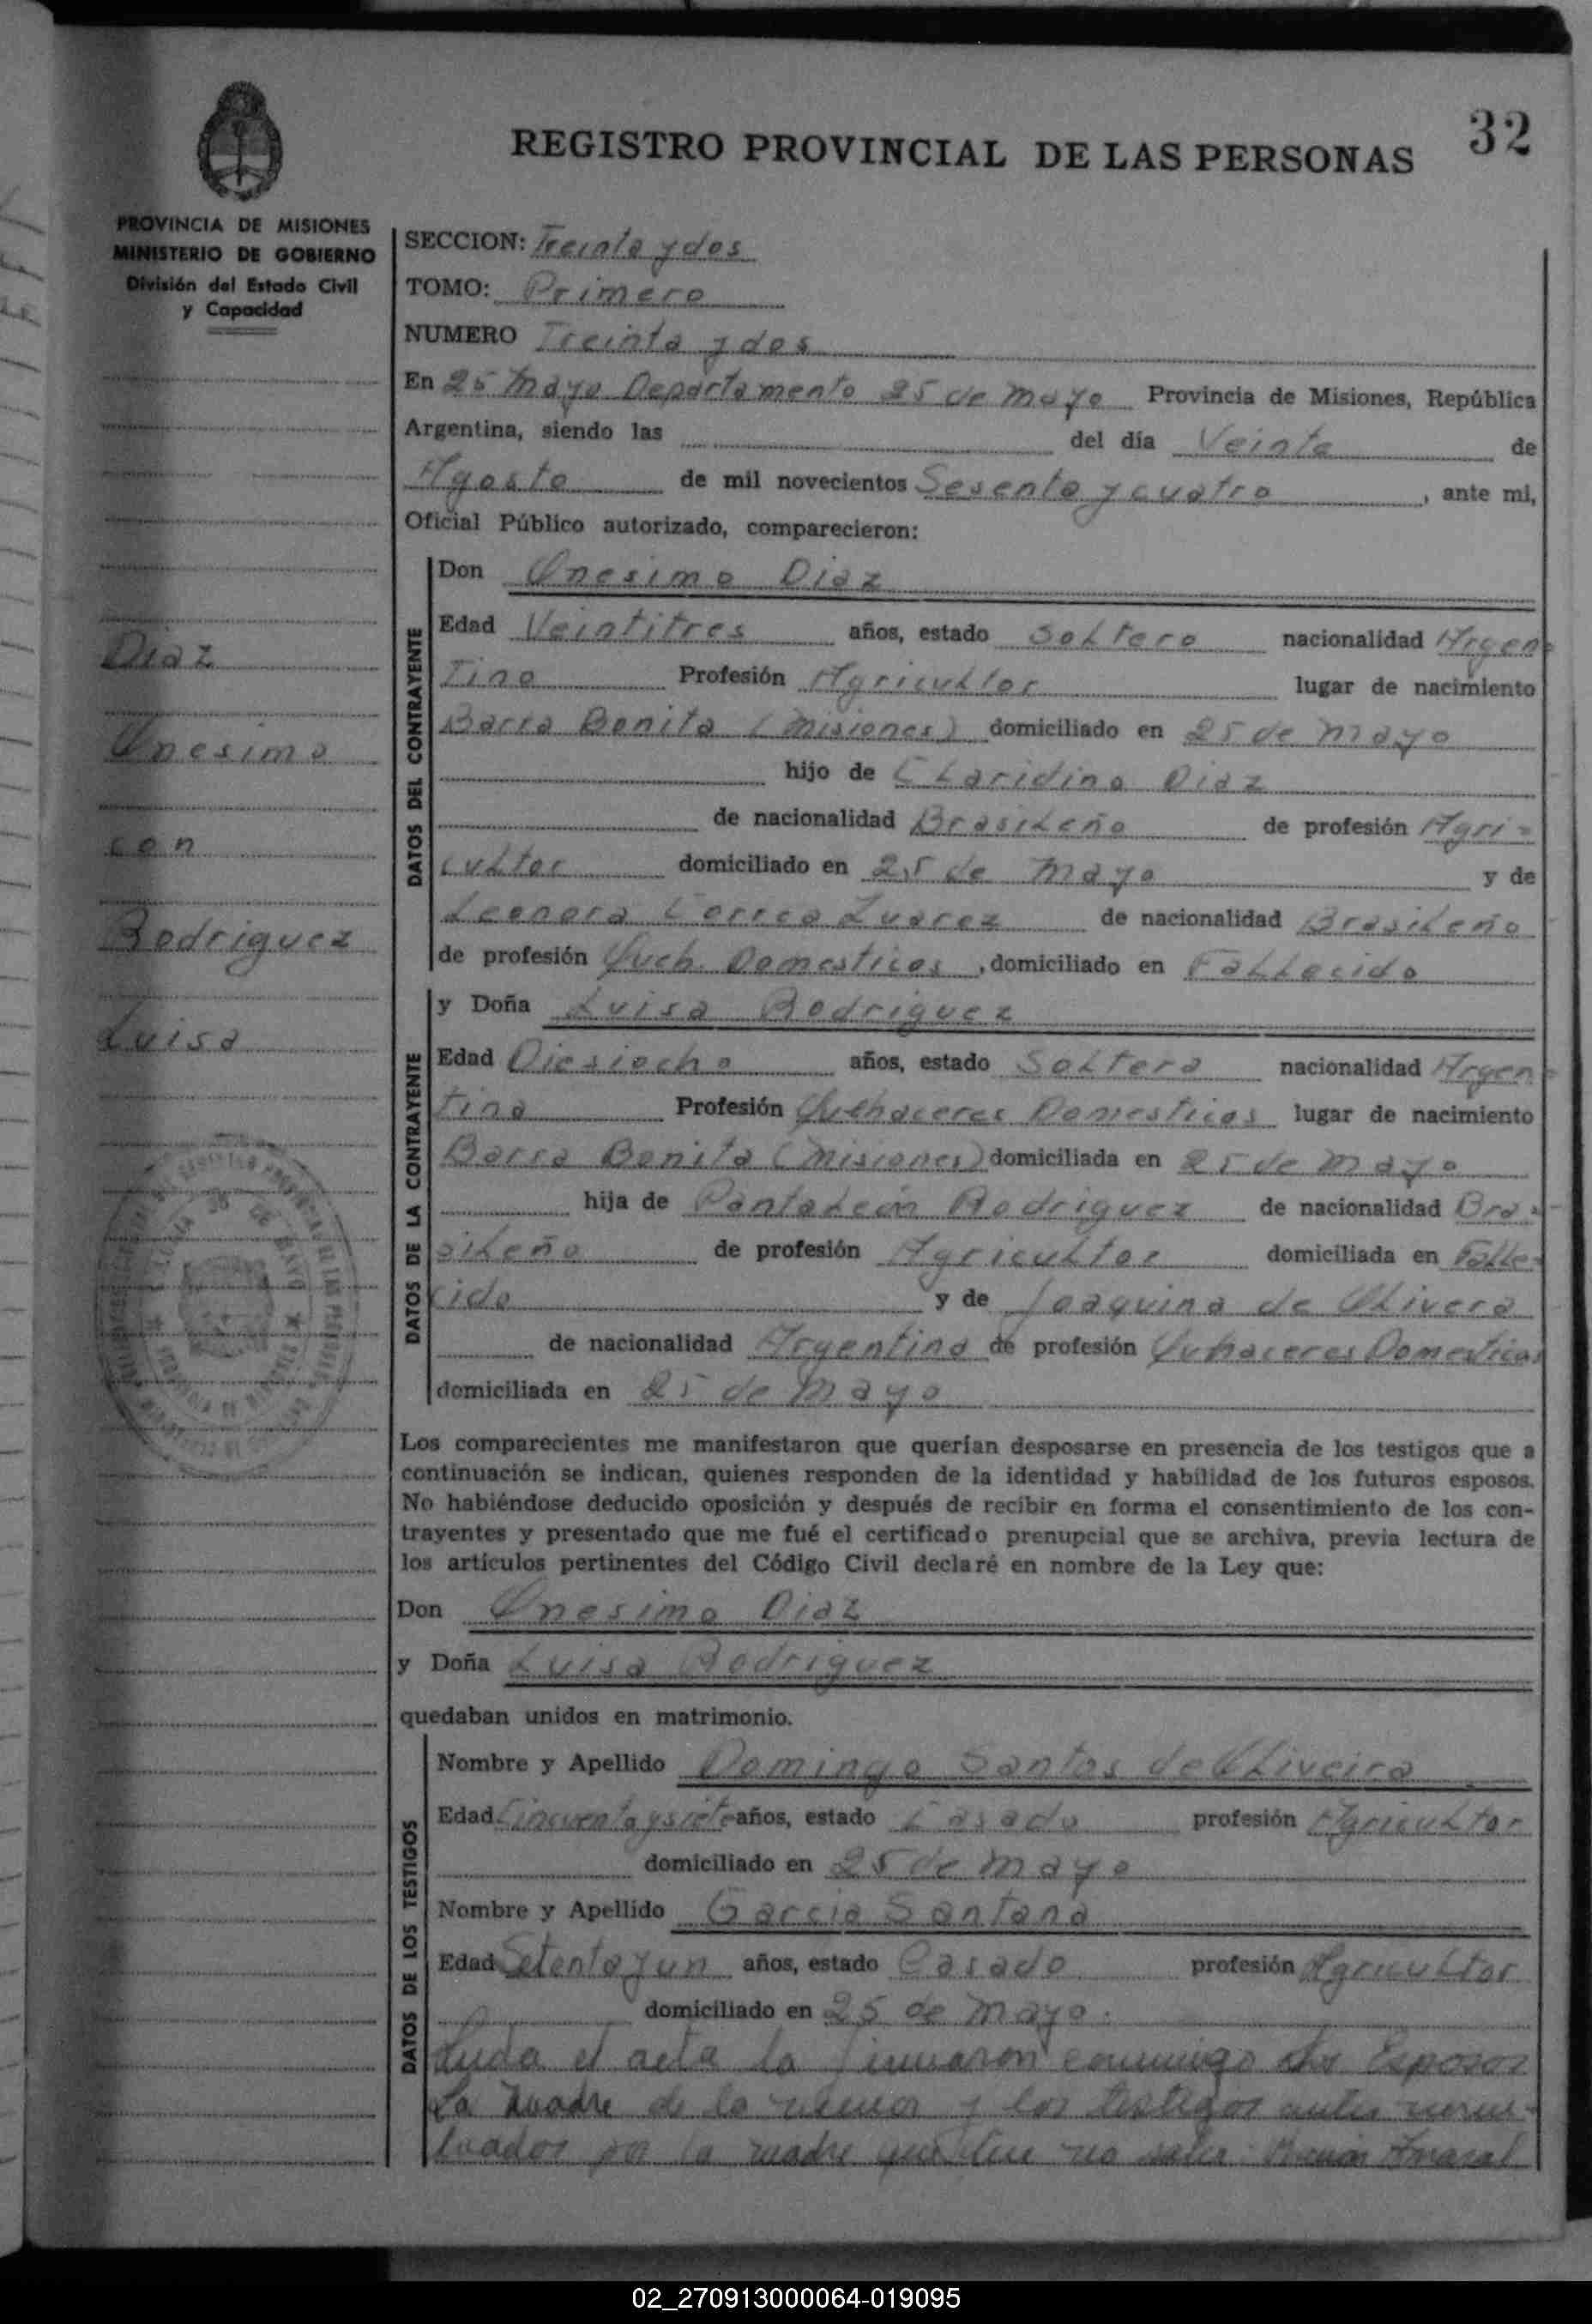 32
REGISTRO PROVINCIAL DE LAS PERSONAS
PROVINCIA DE MISIONES
MINISTERIO DE GOBIERNO
División del Estado Civil
y Capacidad
SECCION: Treinta y dos
TOMO: Primero
NUMERO Treinta y dos
En 25 Mayo Departamento 25 de Mayo Provincia de Misiones, República
Argentina, siendo las del día Veinte de
Agosto de mil novecientos Sesenta y cuatro, ante mi,
Oficial Público autorizado, comparecieron:
DATOS DEL CONTRAYENTE
Don Onesimo Diaz
Edad Veintitres años, estado Soltero nacionalidad Argen=
Tino Profesión Agricultor lugar de nacimiento
Barra Bonita (Misiones) domiciliado en 25 de Mayo
hijo de Claridino Diaz
de nacionalidad Brasileño de profesión Agri=
cultor domiciliado en 25 de Mayo y de
Leonora Correa Luarez de nacionalidad Brasileño
de profesión Queh. Domesticos, domiciliado en Fallecido
DATOS DE LA CONTRAYENTE
y Doña Luisa Rodriguez
Edad Diesiocho años, estado Soltera nacionalidad Argen=
tina Profesión Quehaceres Domesticos lugar de nacimiento
Barra Bonita (Misiones) domiciliada en 25 de Mayo
hija de Pantaleón Rodriguez de nacionalidad Bra=
sileño de profesión Agricultor domiciliada en Falle=
cido y de Joaquina de Olivera
de nacionalidad Argentina de profesión Quhaceres Domesticos
domiciliada en 25 de Mayo
Los comparecientes me manifestaron que querían desposarse en presencia de los testigos que a
continuación se indican, quienes responden de la identidad y habilidad de los futuros esposos.
No habiéndose deducido oposición y después de recibir en forma el consentimiento de los con-
trayentes y presentado que me fué el certificado prenupcial que se archiva, previa lectura de
los artículos pertinentes del Código Civil declaré en nombre de la Ley que:
Don Onesimo Diaz
y Doña Luisa Rodriguez
quedaban unidos en matrimonio.
DATOS DE LOS TESTIGOS
Nombre y Apellido Domingo Santos de Oliveira
Edad Cincuenta y siete años, estado Casado profesión Agricultor
domiciliado en 25 de Mayo
Nombre y Apellido Garcia Santana
Edad Setenta y un años, estado Casado profesión Agricultor
domiciliado en 25 de Mayo.
Leida el acta la firmaron conmigo los Esposos
La Madre de la menor y los testigos antes nom-
brados por la madre que dice no saber Amaral
Diaz
Onesimo
con
Rodriguez
Luisa
02_270913000064-019095